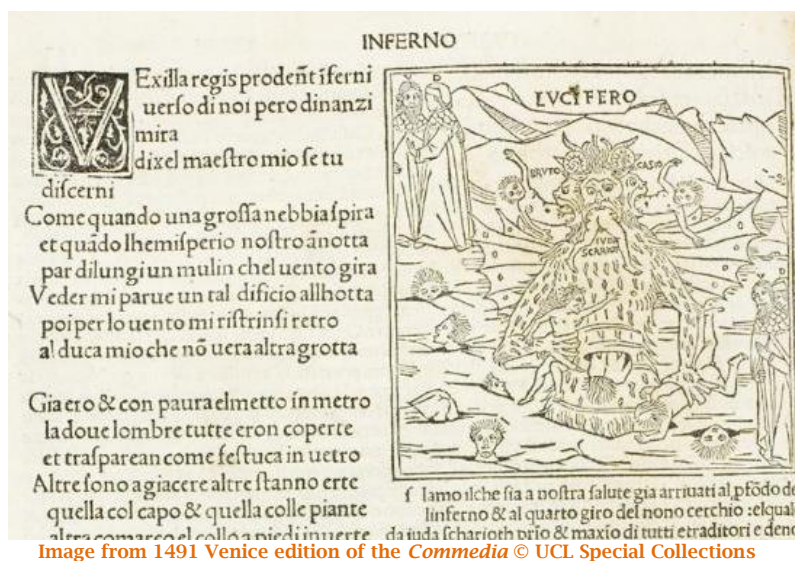 INFERNO
VExilla regis prodeñt īferni
uerſo di noi pero dinanzi
mira
dixel maeſtro mio ſe tu
diſcerni
Come quando una groſſa nebbia ſpira
et quādo lhemiſperio noſtro ānotta
par dilungi un mulin chel uento gira
Veder mi parue un tal dificio allhotta
poi per lo uento mi riſtrinſi retro
al duca mio che nō uera altra grotta
Gia ero & con paura el metto in metro
la doue lombre tutte eron coperte
et traſparean come feſtuca in uetro
Altre ſono a giacere altre ſtanno erte
quella col capo & quella colle piante
altra comarco el collo a piedi inuerte
V D
LVCIFERO
BRVTO CASIO
IVDA
SCARIOT
V D
ſ Iamo ilche ſia a noſtra ſalute gia arriuati al pfōdo de
linferno & al quarto giro del nono cerchio :elqual
da iuda ſcharioth prīo & maxīo di tutti etraditori e deno
Image from 1491 Venice edition of the Commedia © UCL Special Collections